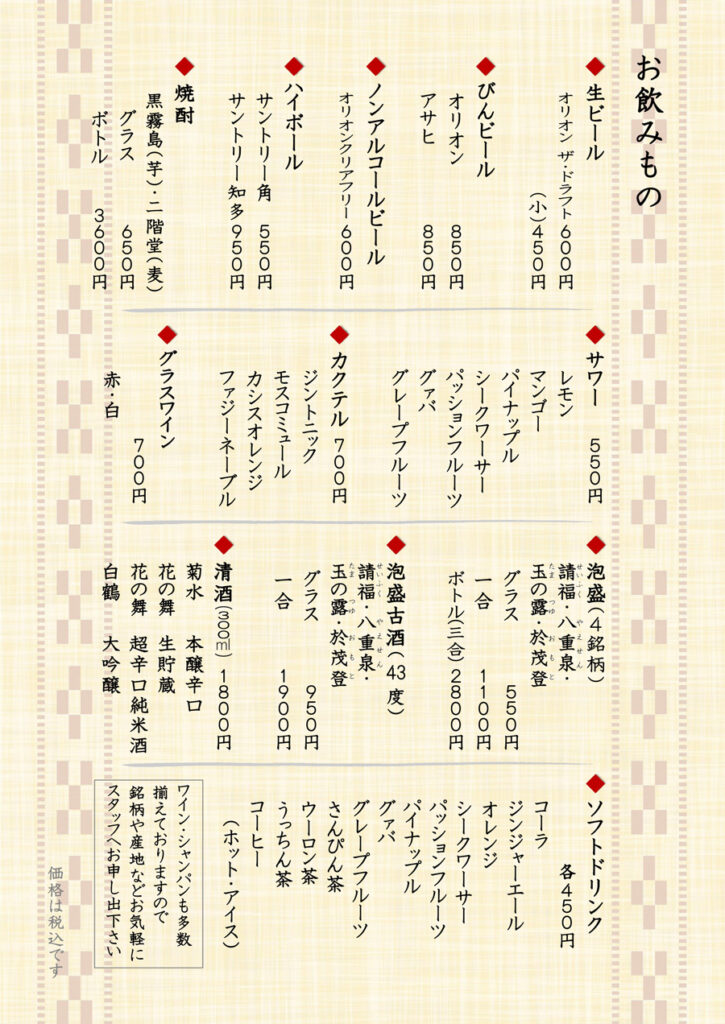 お飲みもの
◆生ビール
オリオン ザ・ドラフト 600円
(小)450円
◆びんビール
オリオン 850円
アサヒ 850円
◆ノンアルコールビール
オリオンクリアフリー 600円
◆ハイボール
サントリー角 550円
サントリー知多 950円
◆焼酎
黒霧島(芋)・二階堂(麦)
グラス 650円
ボトル 3600円
◆サワー 550円
レモン
マンゴー
パイナップル
シークワーサー
パッションフルーツ
グァバ
グレープフルーツ
◆カクテル 700円
ジントニック
モスコミュール
カシスオレンジ
ファジーネーブル
◆グラスワイン
700円
赤・白
◆泡盛(4銘柄)
せいふく やえせん
請福・八重泉・
たま つゆ おもと
玉の露・於茂登
グラス 550円
一合 1100円
ボトル(三合)2800円
◆泡盛古酒(43度)
せいふく やえせん
請福・八重泉・
たま つゆ おもと
玉の露・於茂登
グラス 950円
一合 1900円
◆清酒(300ml)1800円
菊水 本醸辛口
花の舞 生貯蔵
花の舞 超辛口純米酒
白鶴 大吟醸
◆ソフトドリンク
各450円
コーラ
ジンジャーエール
オレンジ
シークワーサー
パッションフルーツ
パイナップル
グァバ
グレープフルーツ
さんぴん茶
ウーロン茶
うっちん茶
コーヒー
(ホット・アイス)
ワイン・シャンパンも多数
揃えておりますので
銘柄や産地などお気軽に
スタッフへお申し出下さい
価格は税込です